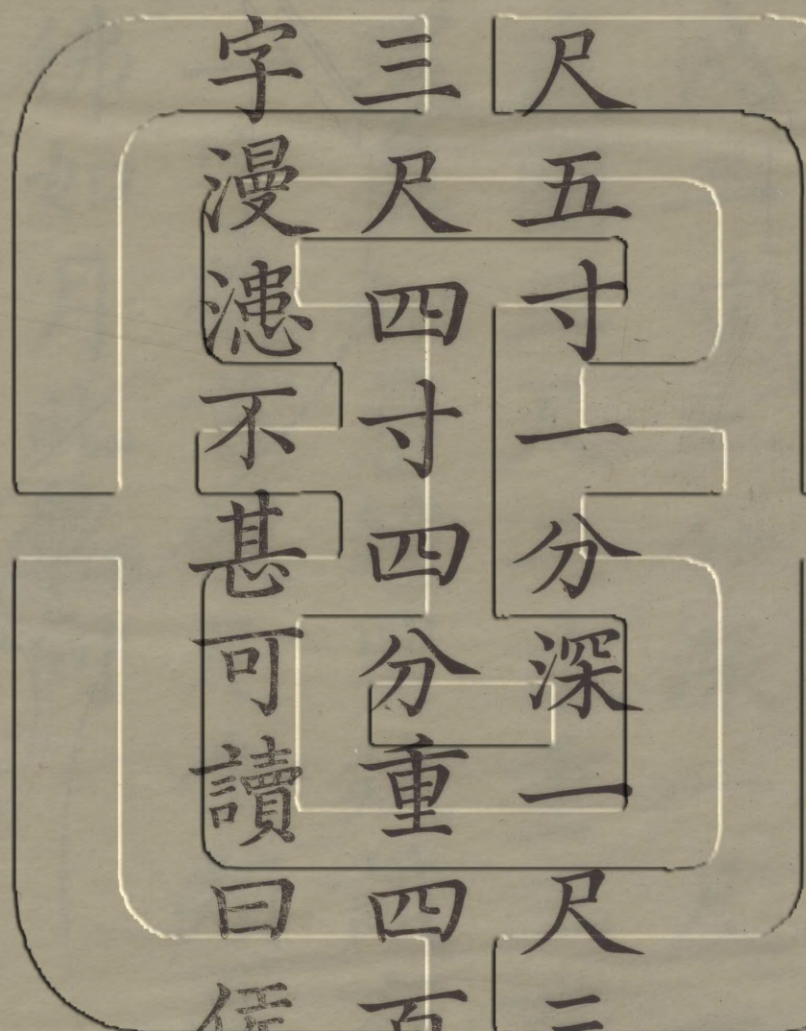 尺五寸一分深一尺三
三尺四寸四分重四百
字漫漶不甚可讀曰侯